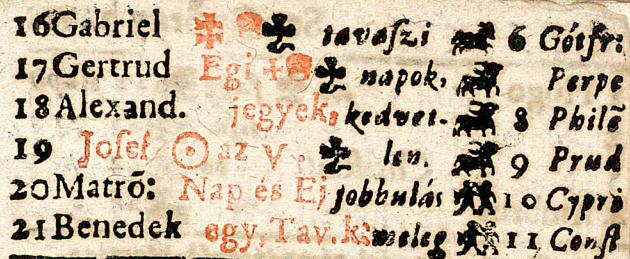 16 Gabriel tavaſzi 6 Gótfr:
17 Gertrud Egi napok, Perpe
18 Alexand. jegyek, kedvet- 8 Philē
19 Joſef ☉ az V. len. 9 Prud
20 Matrō: Nap és Ej jobbulás 10 Cypri
21 Benedek egy, Tav. k: meleg 11 Conſt